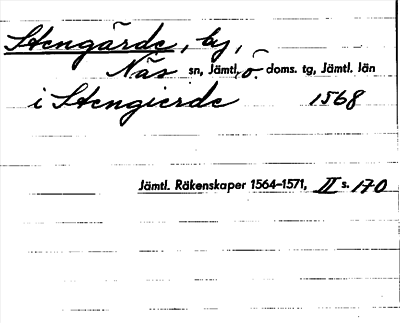 Stengärde, by,
Näs sn, Jämtl. Ö. doms. tg, Jämtl. län
i Stengierde 1568
Jämtl. Räkenskaper 1564–1571, II s. 170